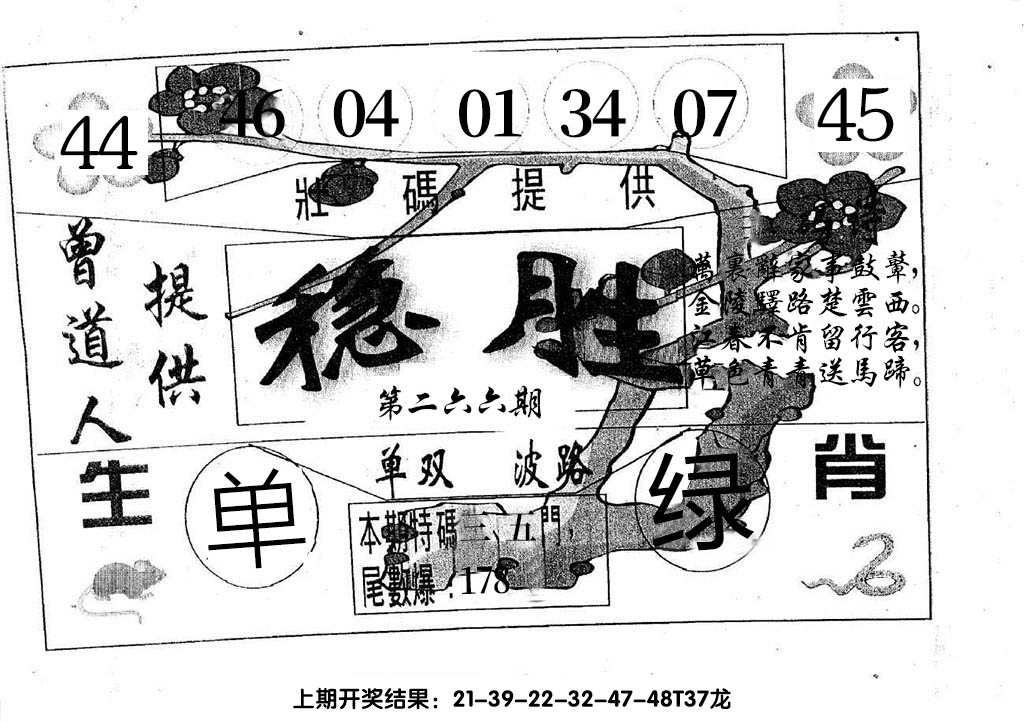 44 46 04 01 34 07 45
壯碼提供
曾道人
提供
稳胜
第二六六期
詩
萬裏辭家事鼓鼙，
金陵驛路楚雲西。
江春不肯留行客，
草色青青送馬蹄。
单双 波路
生肖
单
绿
本期特碼三、五門，
尾數爆：178
上期开奖结果：21-39-22-32-47-48T37龙